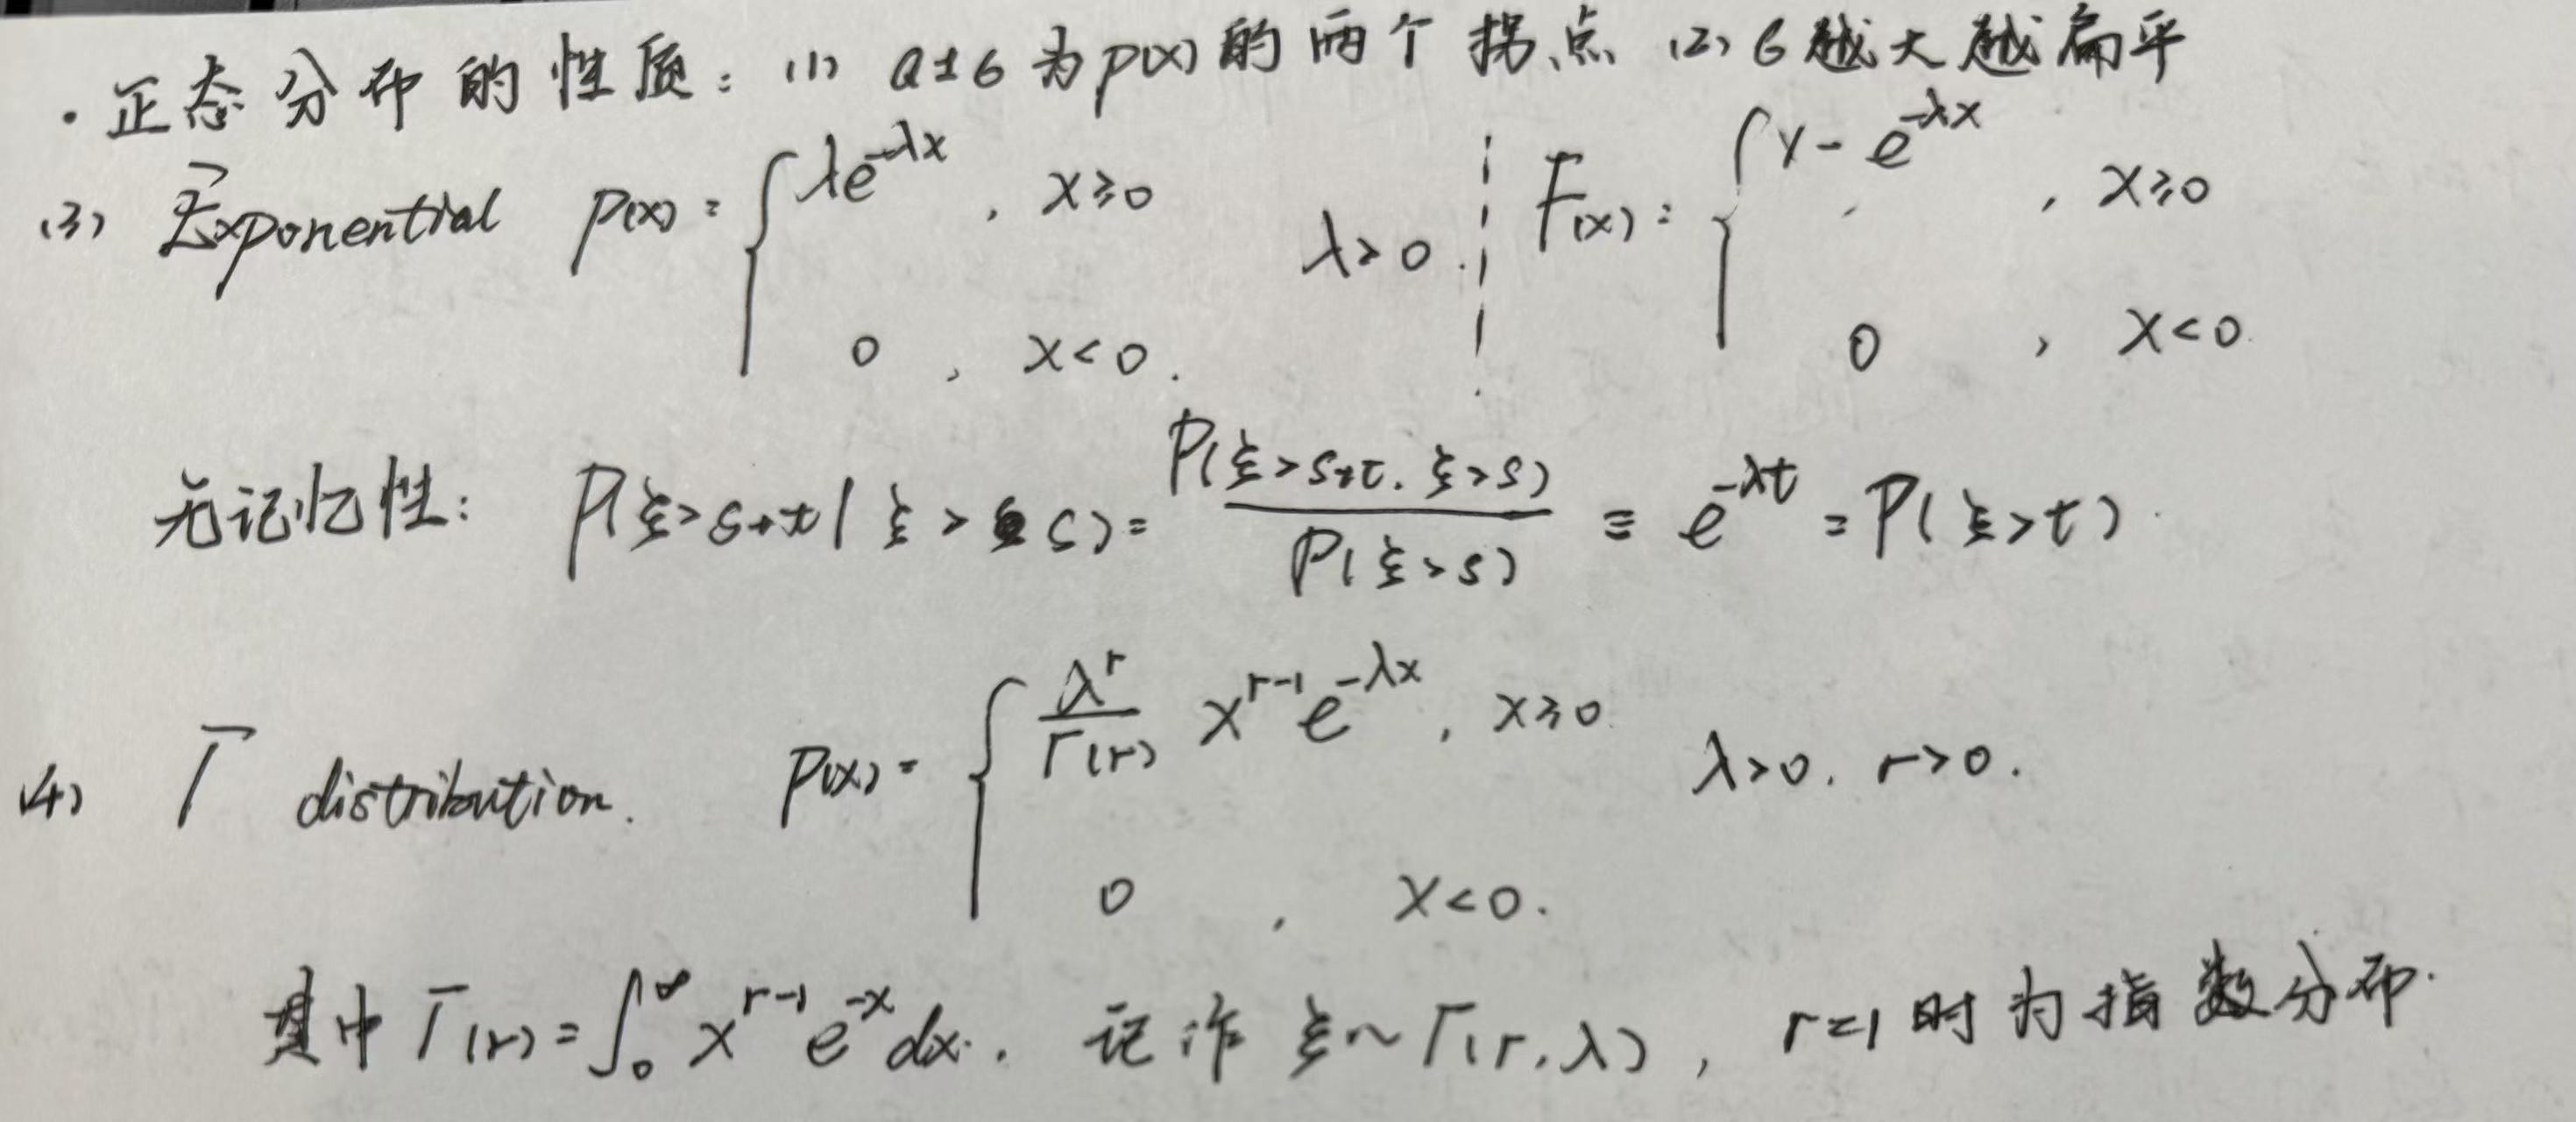 · 正态分布的性质：(1) a±σ 为 p(x) 的两个拐点 (2) σ越大越扁平
(3) Exponential p(x) = { λe^{-λx}, x≥0 ; 0, x<0. λ>0. ¦ F(x) = { 1 - e^{-λx}, x≥0 ; 0, x<0.
无记忆性： P(ξ>s+t | ξ>s) = P(ξ>s+t, ξ>s) / P(ξ>s) = e^{-λt} = P(ξ>t).
(4) Γ distribution. p(x) = { λ^r/Γ(r) x^{r-1} e^{-λx}, x≥0 ; 0, x<0. λ>0, r>0.
其中 Γ(r) = ∫_0^∞ x^{r-1} e^{-x} dx. 记作 ξ~Γ(r,λ), r=1 时为指数分布.